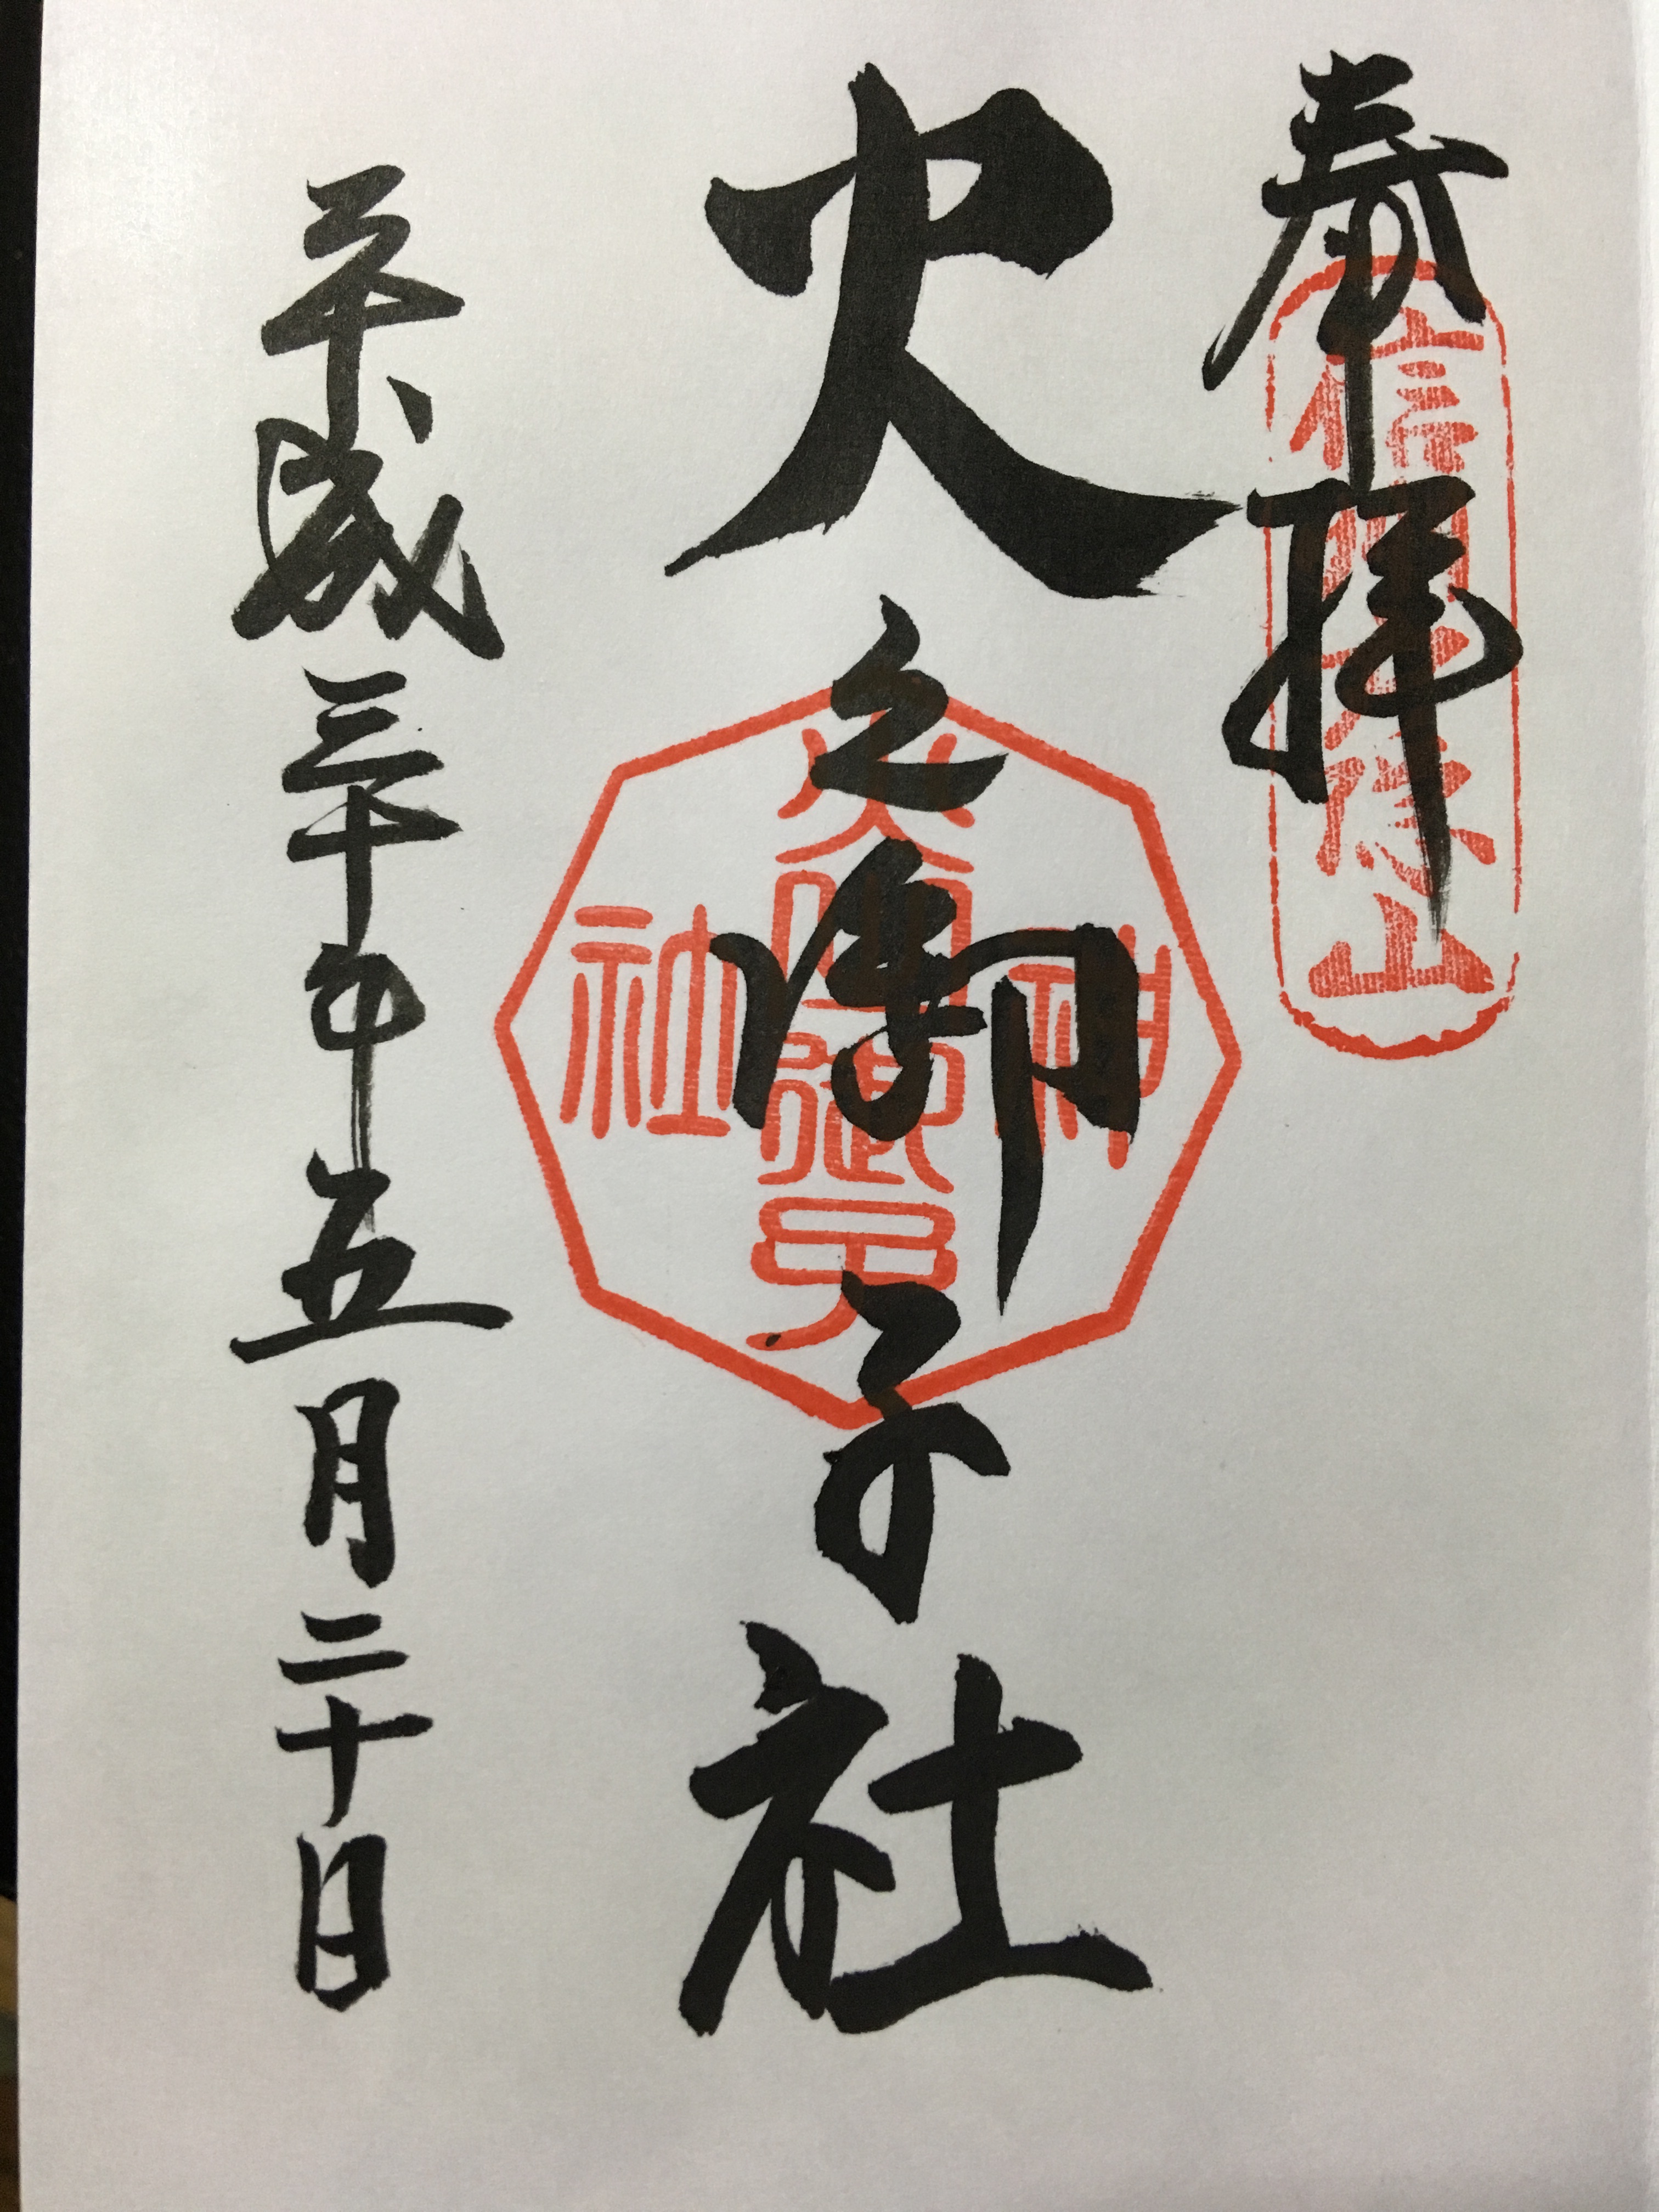 奉拝
信州戸隠山
火之御子社
火之御子
神社
平成三十年五月二十日